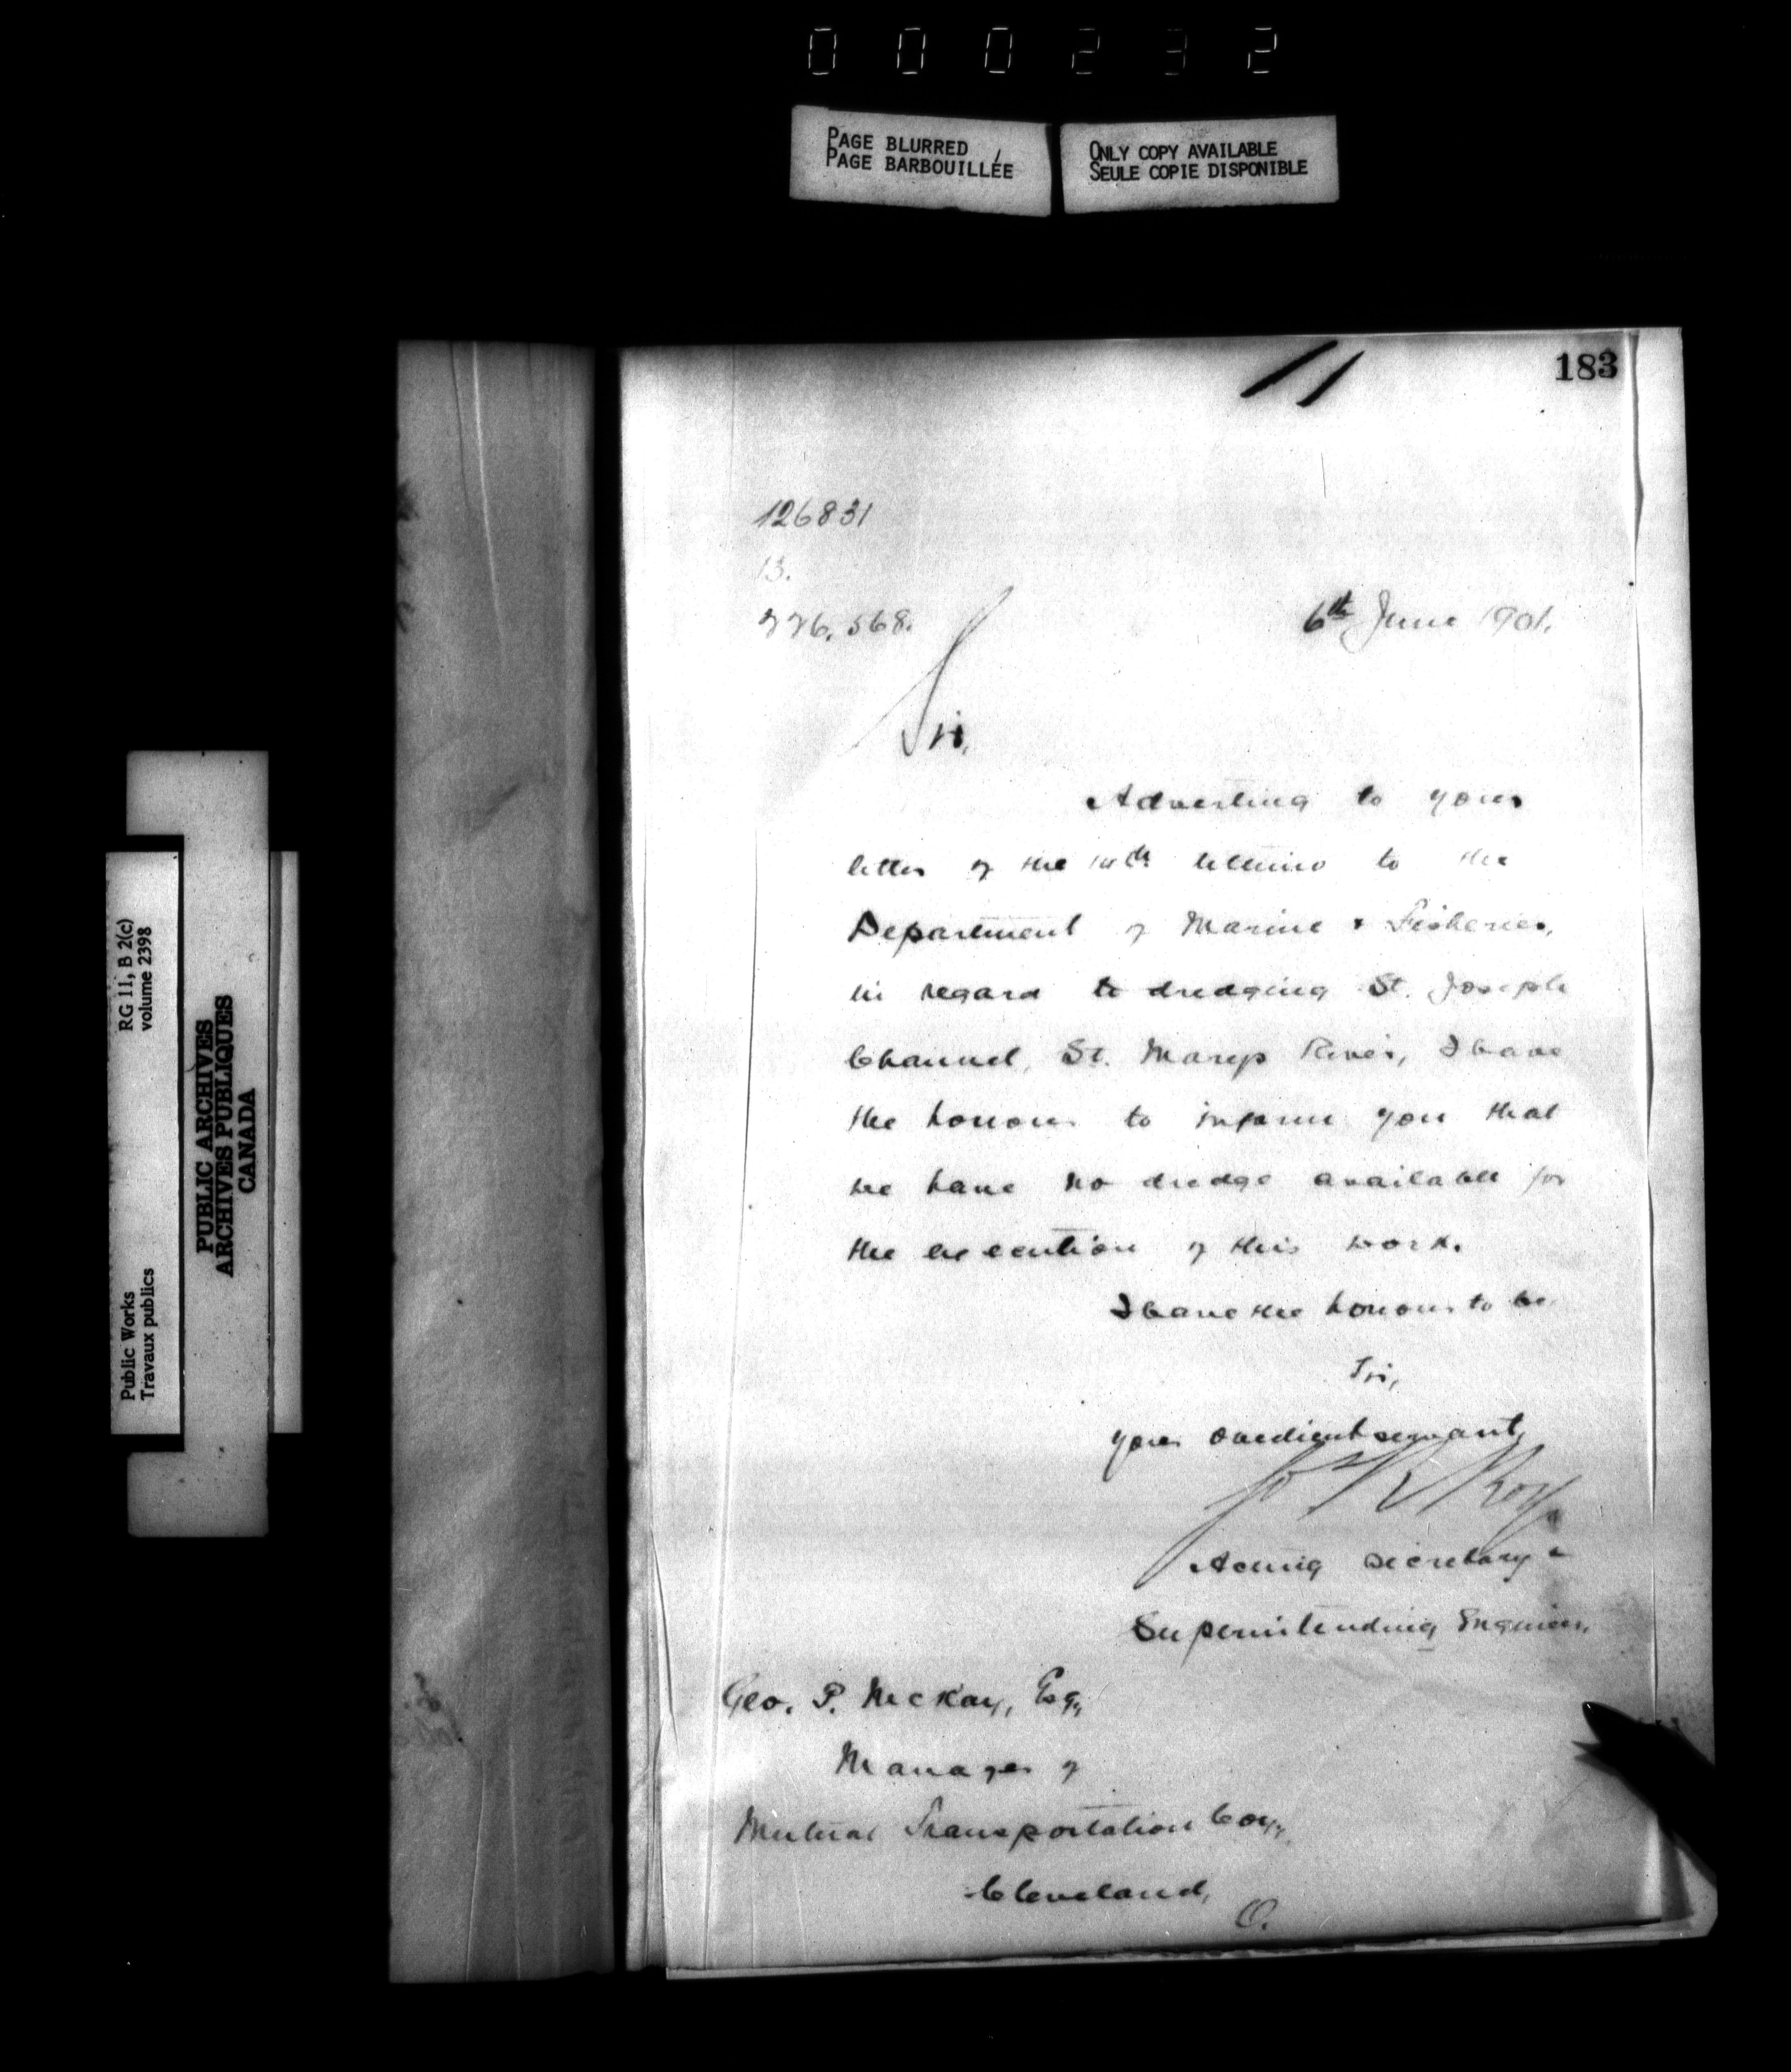 000232
PAGE BLURRED
PAGE BARBOUILLÉE
ONLY COPY AVAILABLE
SEULE COPIE DISPONIBLE
183
126831
13.
226.568.
6th June 1901.
Sir,
Adverting to your
letter of the 14th ultimo to the
Department of Marine & Fisheries,
in regard to dredging St. Joseph
Channel, St. Marys River, I have
the honour to inform you that
we have no dredge available for
the execution of this work.
I have the honour to be
Sir,
your obedient servant,
Jos R Roy
Acting Secretary &
Superintending Engineer.
Geo. P. McKay, Esq.,
Manager of
Mutual Transportation Coy.,
Cleveland,
O.
Public Works
Travaux publics
RG 11, B 2(c)
volume 2398
PUBLIC ARCHIVES
ARCHIVES PUBLIQUES
CANADA